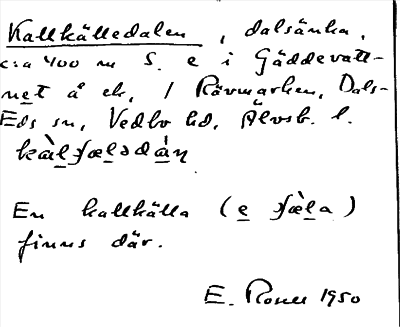 Kallkälledalen, dalsänka,
c:a 400 m S. e i Gäddevatt-
net å ek, / Rävmarken, Dals-
Eds sn, Vedbo hd, Älvsb. l.
En kallkälla (e ʃæla)
finns där.
E. 1950